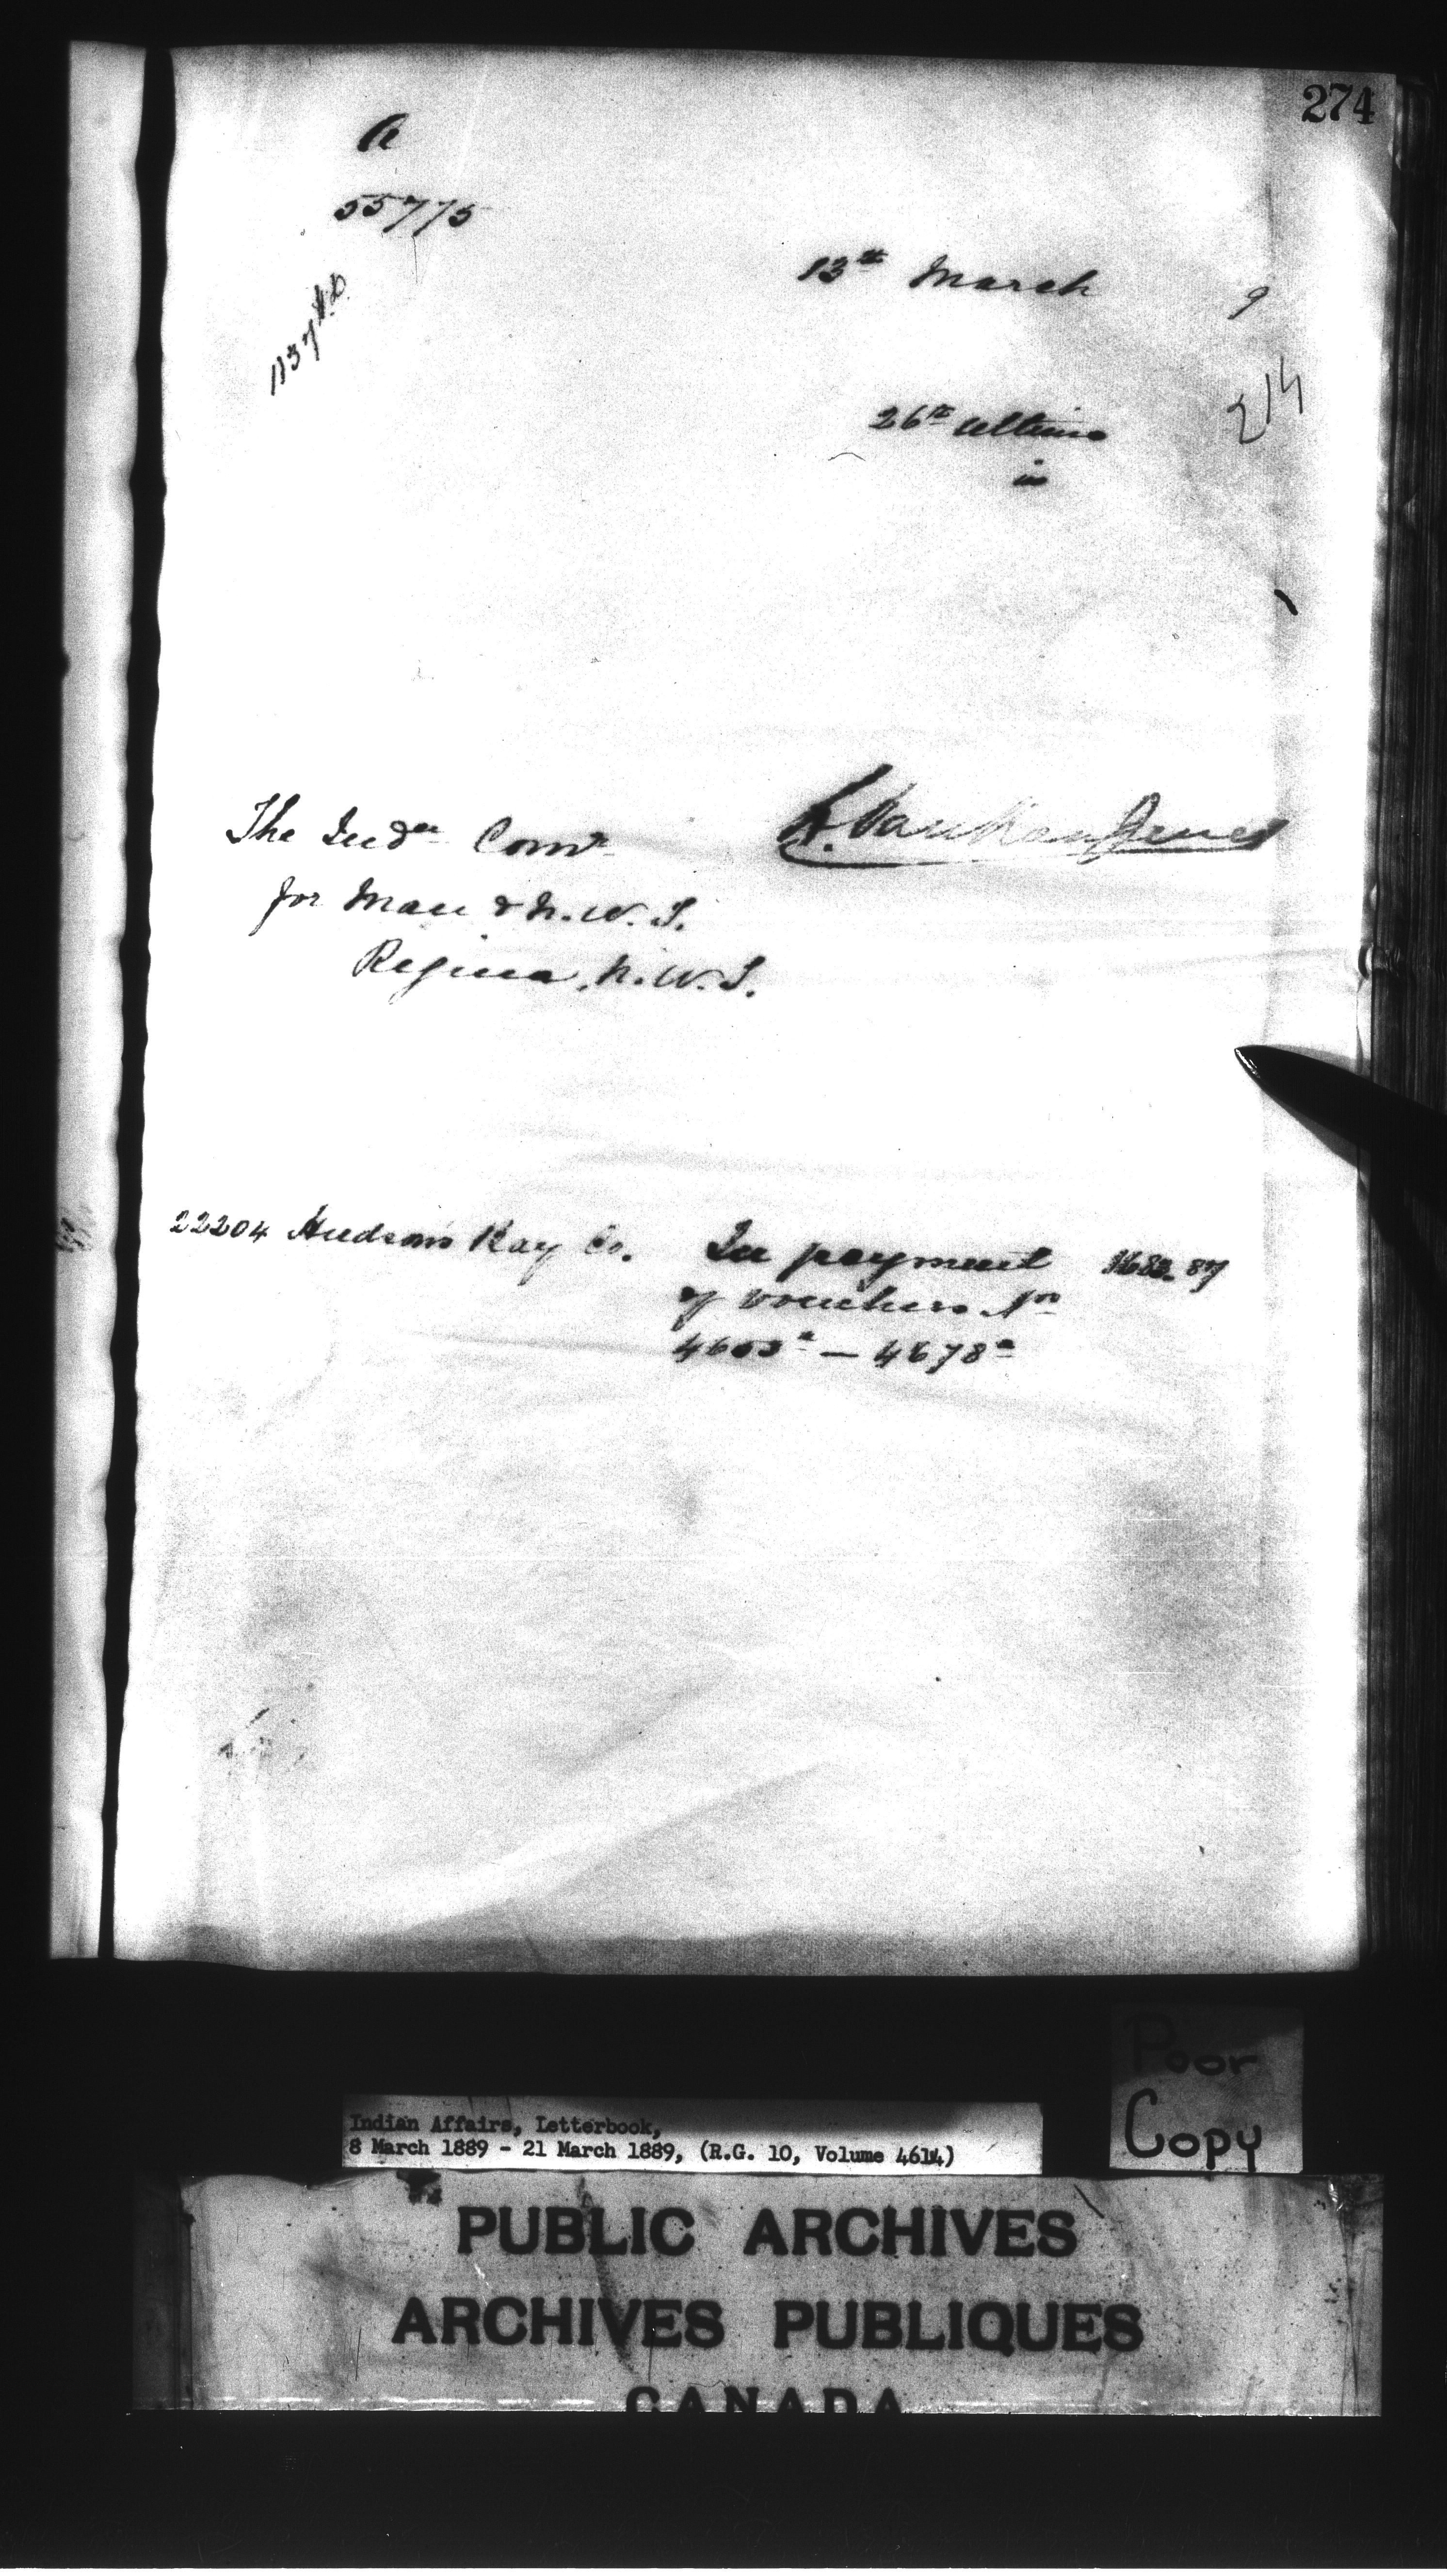 274
A
55775
13th March 9
214
26th ultimo
in
L. Vankoughnet
The Indn Comr
for Man & N.W.T.
Regina, N.W.T.
22204 Hudson's Bay Co. In payment
of vouchers Nos
— 4678a
Poor
Copy
Indian Affairs, Letterbook,
8 March 1889 - 21 March 1889, (R.G. 10, Volume 4614)
PUBLIC ARCHIVES
ARCHIVES PUBLIQUES
CANADA